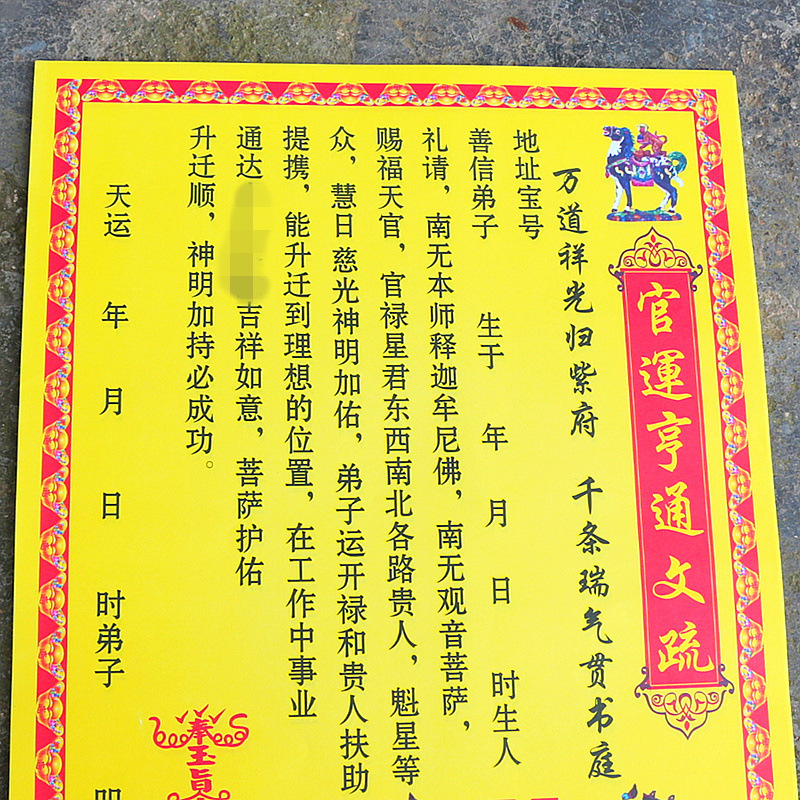 官運亨通文疏
万道祥光归紫府 千条瑞气贯书庭
地址宝号
善信弟子 生于 年 月 日 时生人
礼请，南无本师释迦牟尼佛，南无观音菩萨，
赐福天官，官禄星君东西南北各路贵人，魁星等
众，慧日慈光神明加佑，弟子运开禄和贵人扶助
提携，能升迁到理想的位置，在工作中事业
通达 吉祥如意，菩萨护佑
升迁顺，神明加持必成功。
天运 年 月 日 时弟子
奉玉旨